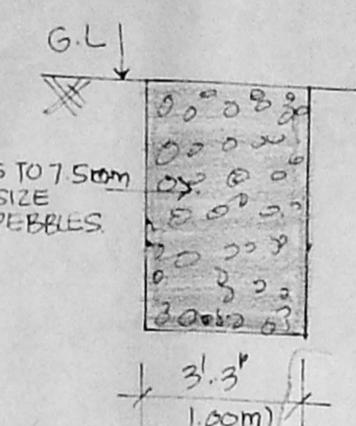 G.L
TO 7.5mm
SIZE
PEBBLES.
3'.3"
1.00m)